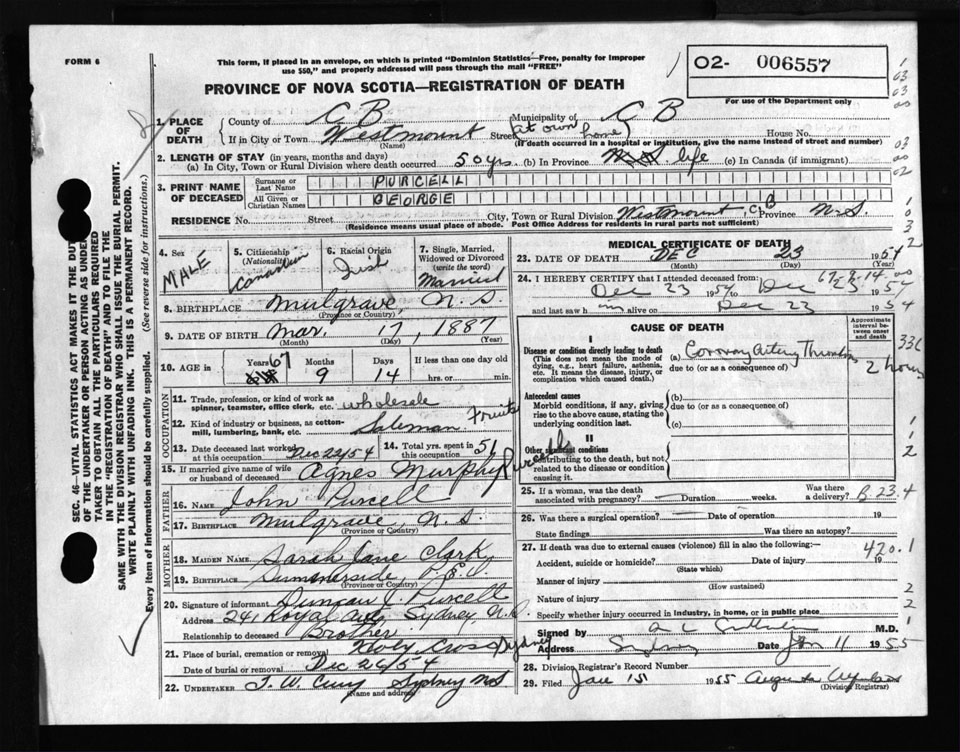 FORM 6
This form, if placed in an envelope, on which is printed "Dominion Statistics—Free, penalty for improper
use $50," and properly addressed will pass through the mail "FREE"
PROVINCE OF NOVA SCOTIA—REGISTRATION OF DEATH
02- 006557
For use of the Department only
1. PLACE OF DEATH County of C B Municipality of C B
If in City or Town Westmount Street (at own home) House No.
(Name) (If death occurred in a hospital or institution, give the name instead of street and number)
2. LENGTH OF STAY (in years, months and days)
(a) In City, Town or Rural Division where death occurred 50 yrs. (b) In Province life (c) In Canada (if immigrant)
3. PRINT NAME OF DECEASED Surname or Last Name PURCELL
All Given or Christian Names GEORGE
RESIDENCE No. Street City, Town or Rural Division Westmount, C B Province N.S.
(Residence means usual place of abode. Post Office Address for residents in rural parts not sufficient)
4. Sex MALE
5. Citizenship (Nationality) Canadian
6. Racial Origin Irish
7. Single, Married, Widowed or Divorced (write the word) Married
8. BIRTHPLACE Mulgrave, N.S.
(Province or Country)
9. DATE OF BIRTH Mar. 17, 1887
(Month) (Day) (Year)
10. AGE in Years 67 Months 9 Days 14 If less than one day old
hrs. or min.
OCCUPATION
11. Trade, profession, or kind of work as spinner, teamster, office clerk, etc. wholesale
12. Kind of industry or business, as cotton-mill, lumbering, bank, etc. Salesman Fruits
13. Date deceased last worked at this occupation Dec 22/54
14. Total yrs. spent in this occupation 51
15. If married give name of wife or husband of deceased Agnes Murphy Purcell
FATHER
16. NAME John Purcell
17. BIRTHPLACE Mulgrave, N.S.
(Province or Country)
MOTHER
18. MAIDEN NAME Sarah Jane Clark
19. BIRTHPLACE Summerside, P.E.I.
(Province or Country)
20. Signature of informant Duncan J. Purcell
Address 241 Royal Ave, Sydney, N.S.
Relationship to deceased Brother
21. Place of burial, cremation or removal Holy Cross Sydney
Date of burial or removal Dec 26/54
22. UNDERTAKER T. W. Curry Sydney NS
(Name and address)
MEDICAL CERTIFICATE OF DEATH
23. DATE OF DEATH DEC 23 1954
(Month) (Day) (Year)
67-9-14
24. I HEREBY CERTIFY that I attended deceased from:
Dec 23 1954 to Dec 23 1954
and last saw h im alive on Dec 23 1954
CAUSE OF DEATH
Approximate interval between onset and death
I
Disease or condition directly leading to death
(This does not mean the mode of dying, e.g., heart failure, asthenia, etc. It means the disease, injury, or complication which caused death.)
(a) Coronary Artery Thrombosis 2 hours
due to (or as a consequence of)
332
Antecedent causes
Morbid conditions, if any, giving rise to the above cause, stating the underlying condition last.
(b)
due to (or as a consequence of)
(c)
II
Other significant conditions
contributing to the death, but not related to the disease or condition causing it.
25. If a woman, was the death associated with pregnancy? Duration weeks. Was there a delivery?
B.23.4
26. Was there a surgical operation? Date of operation 19
State findings Was there an autopsy?
27. If death was due to external causes (violence) fill in also the following:—
420.1
Accident, suicide or homicide? Date of injury 19
(State which)
Manner of injury
(How sustained)
Nature of injury
Specify whether injury occurred in industry, in home, or in public place
Signed by M.D.
Address Sydney Date Jan 11 1955
28. Division Registrar's Record Number
29. Filed Jan 15 1955
(Division Registrar)
SEC. 46—VITAL STATISTICS ACT MAKES IT THE DUTY
OF THE UNDERTAKER OR PERSON ACTING AS UNDER-
TAKER TO OBTAIN ALL THE PARTICULARS REQUIRED
IN THE "REGISTRATION OF DEATH" AND TO FILE THE
SAME WITH THE DIVISION REGISTRAR WHO SHALL ISSUE THE BURIAL PERMIT.
WRITE PLAINLY WITH UNFADING INK. THIS IS A PERMANENT RECORD.
Every item of information should be carefully supplied. (See reverse side for instructions.)